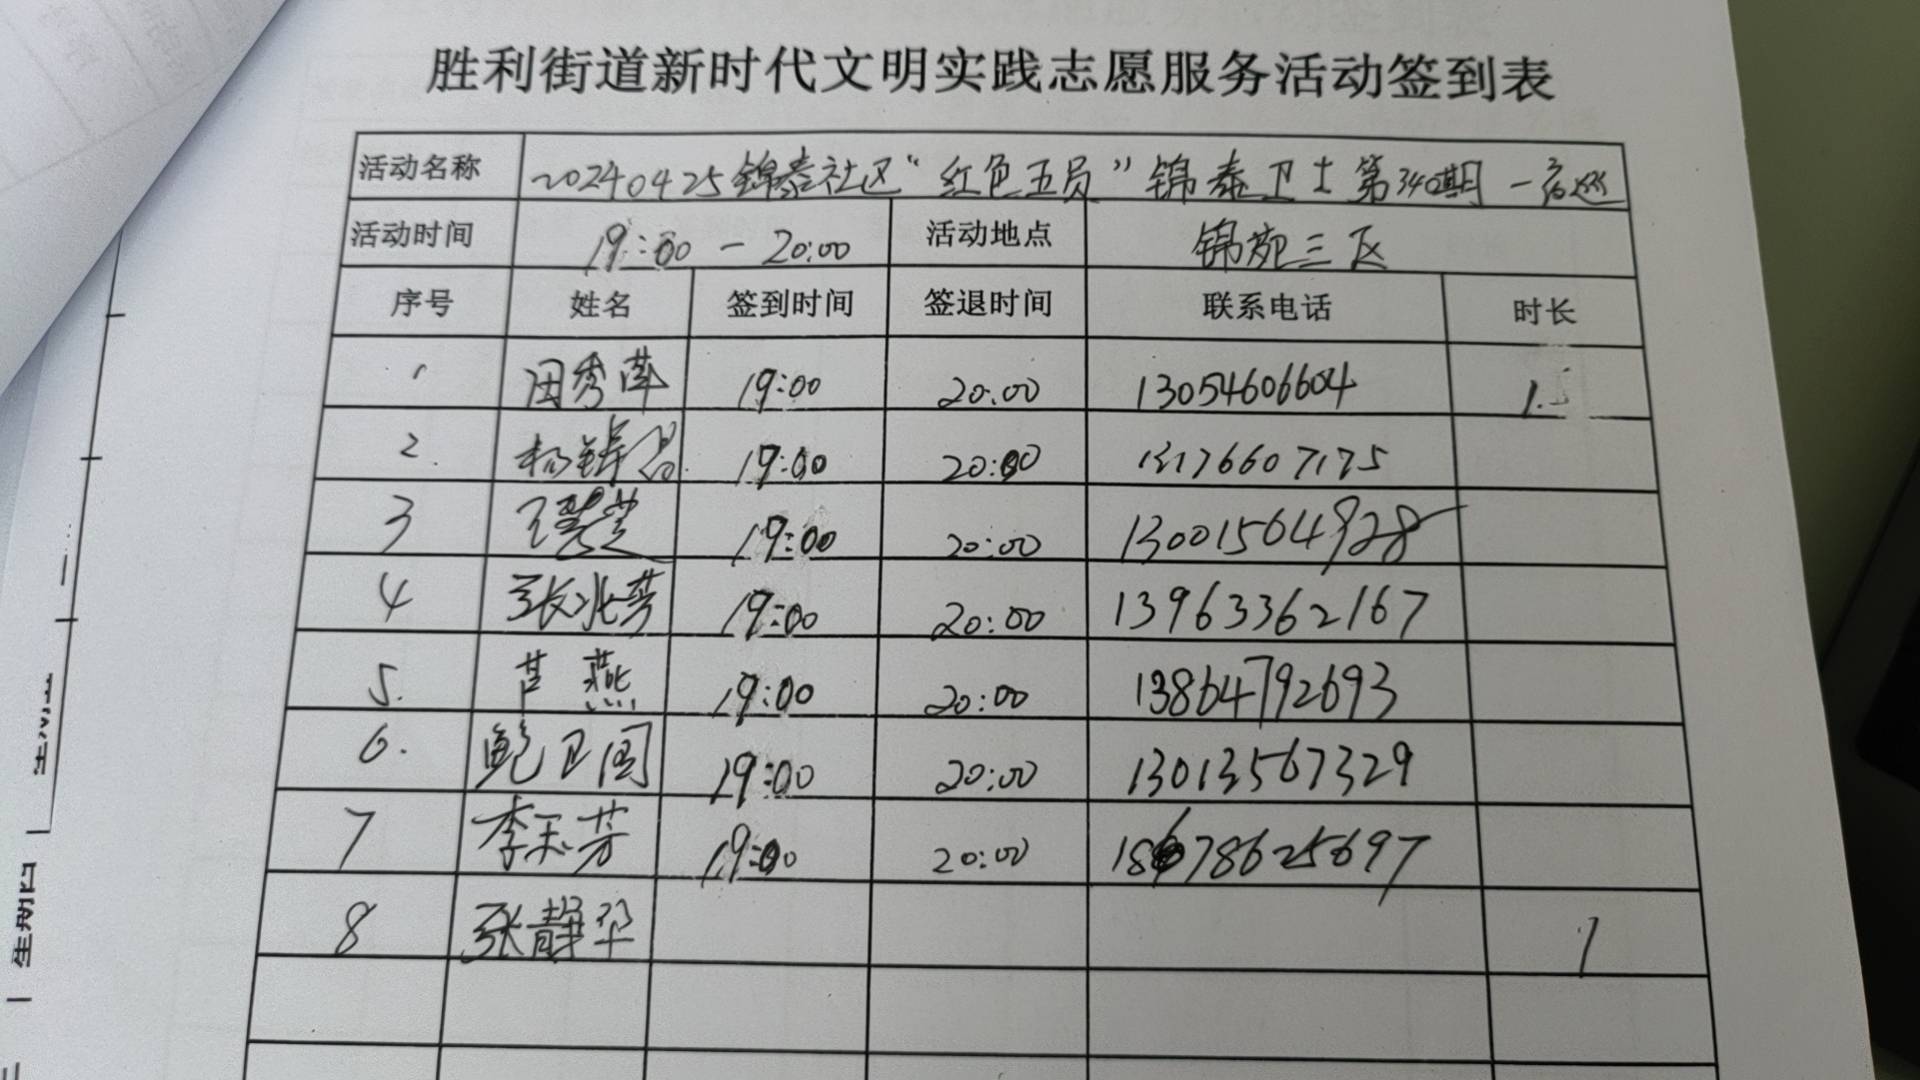 胜利街道新时代文明实践志愿服务活动签到表
活动名称 20240425锦泰社区“红色五员”锦泰卫士第340期一夜巡
活动时间 19:00 - 20:00 活动地点 锦苑三区
序号 姓名 签到时间 签退时间 联系电话 时长
1 田秀萍 19:00 20:00 13054606604 1.5
2. 杨 19:00 20:00 13176607175
3 王 19:00 20:00 13001564928
4 张兆芳 19:00 20:00 13963362167
5. 燕 19:00 20:00 13864792693
6. 鲍卫国 19:00 20:00 13013567329
7 李玉芳 19:00 20:00 18678625697
8 张静华 1
星期四